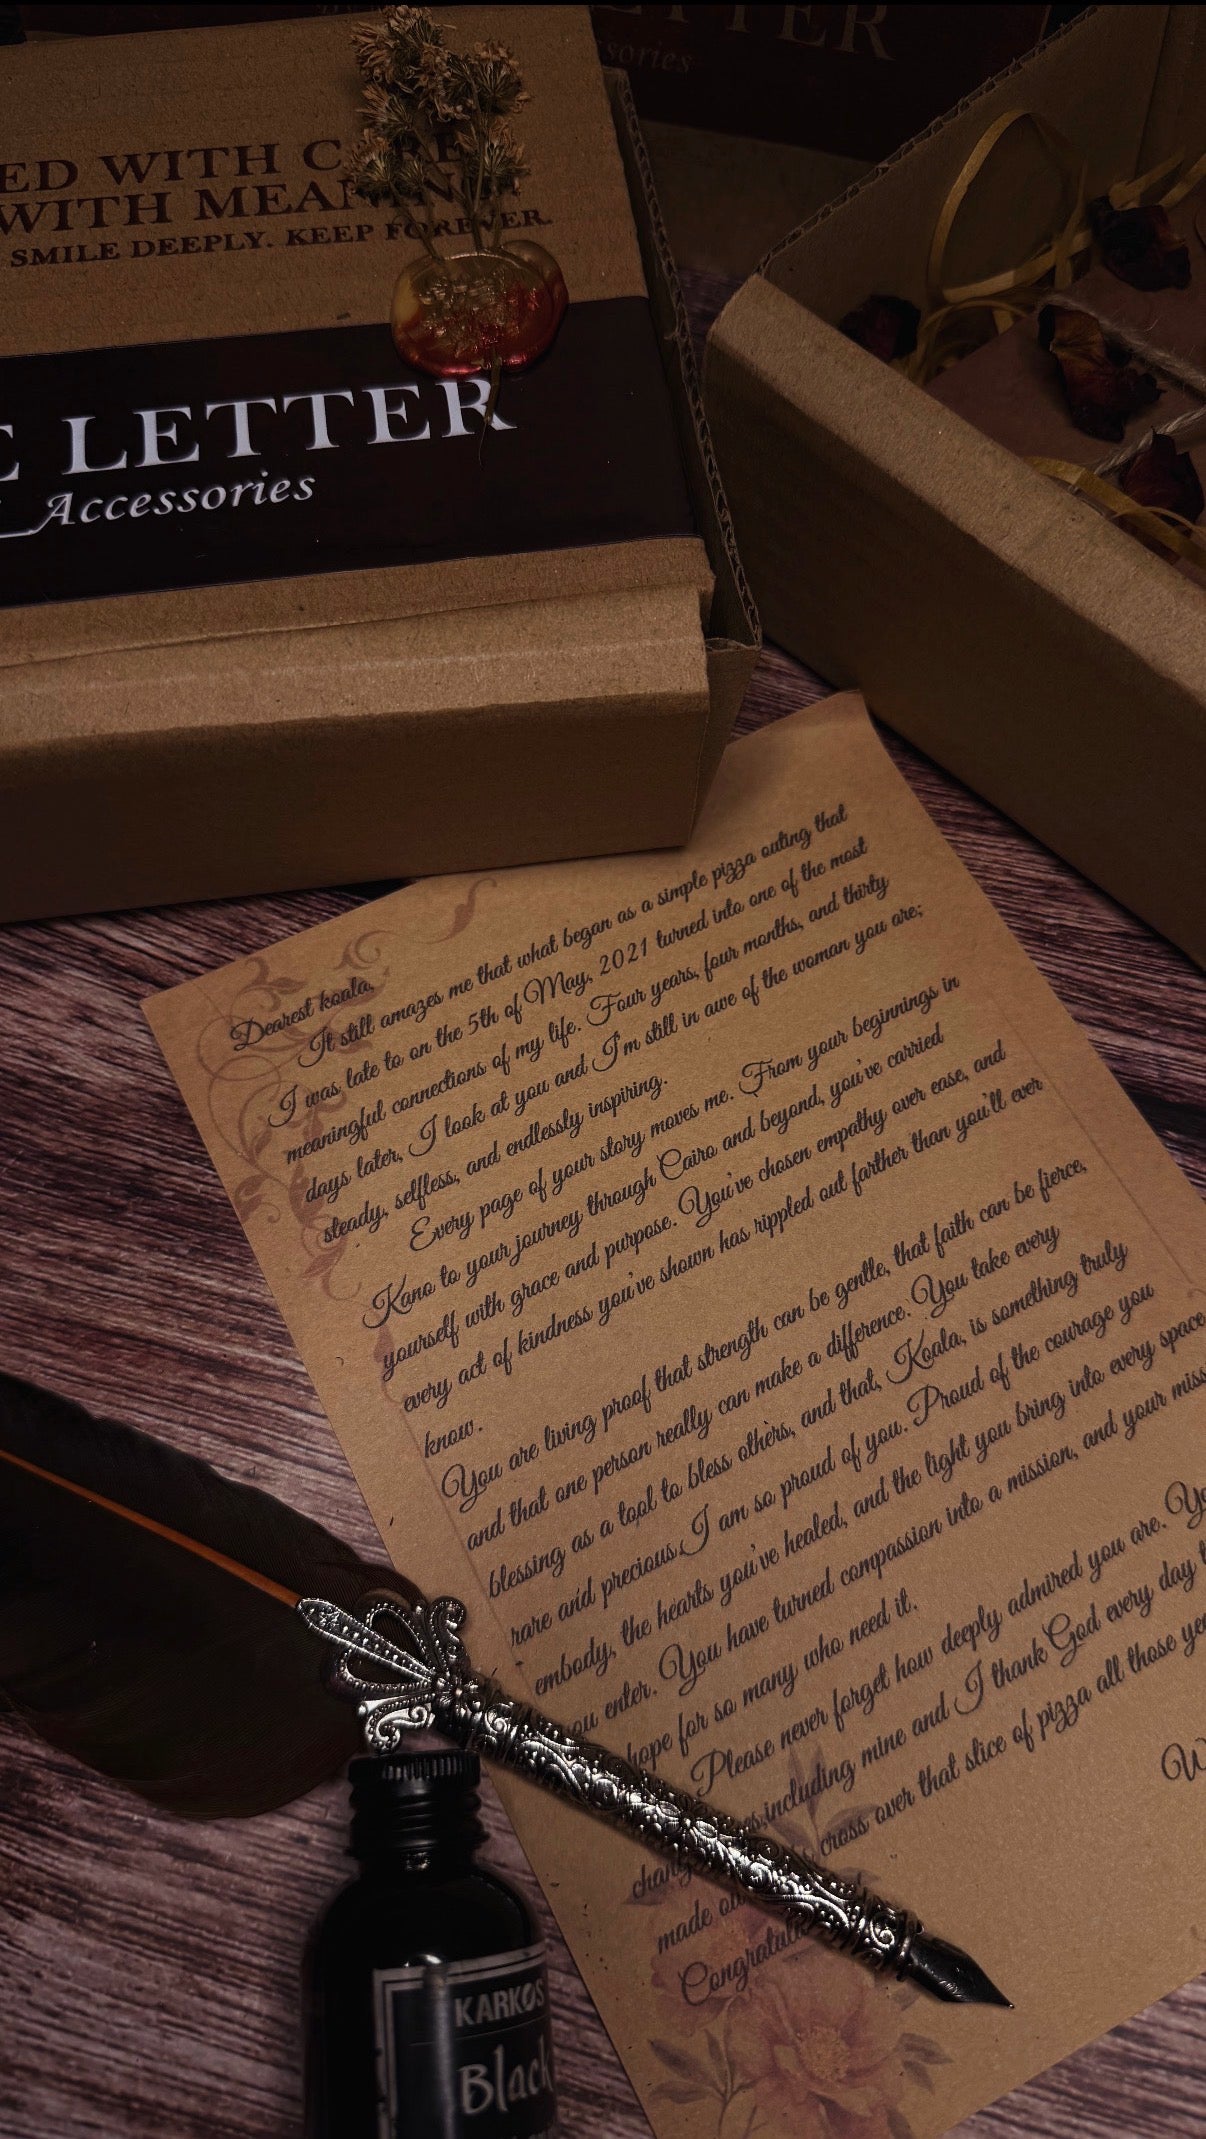 ETTER
ssories
ED WITH CARE
WITH MEANING
SMILE DEEPLY. KEEP FOREVER.
E LETTER
Accessories
Dearest koala,
It still amazes me that what began as a simple pizza outing that
I was late to on the 5th of May, 2021 turned into one of the most
meaningful connections of my life. Four years, four months, and thirty
days later, I look at you and I'm still in awe of the woman you are;
steady, selfless, and endlessly inspiring.
Every page of your story moves me. From your beginnings in
Kano to your journey through Cairo and beyond, you've carried
yourself with grace and purpose. You've chosen empathy over ease, and
every act of kindness you've shown has rippled out farther than you'll ever
know.
You are living proof that strength can be gentle, that faith can be fierce,
and that one person really can make a difference. You take every
blessing as a tool to bless others, and that, Koala, is something truly
rare and precious.I am so proud of you. Proud of the courage you
embody, the hearts you've healed, and the light you bring into every space
you enter. You have turned compassion into a mission, and your miss
hope for so many who need it.
Please never forget how deeply admired you are. Yo
chang es,including mine and I thank God every day t
made ou cross over that slice of pizza all those ye
Congratula
W
KARKOS
Black